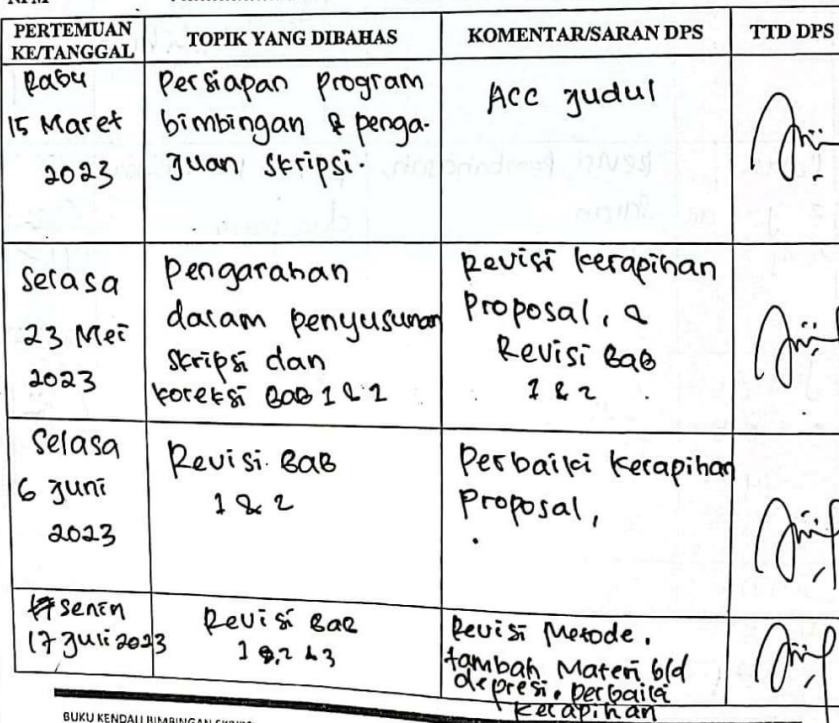 PERTEMUAN KE/TANGGAL
TOPIK YANG DIBAHAS
KOMENTAR/SARAN DPS
TTD DPS
Rabu
15 Maret
2023
Persiapan program
bimbingan & penga-
juan skripsi.
Acc judul
Selasa
23 Mei
2023
Pengarahan
dalam penyusunan
skripsi dan
koreksi BAB 1 & 2
Revisi kerapihan
Proposal, &
Revisi BAB
1 & 2
Selasa
6 Juni
2023
Revisi BAB
1 & 2
Perbaiki kerapihan
Proposal,
Senin
17 Juli 2023
Revisi BAB
1, 2 & 3
Revisi Metode,
tambah Materi b/d
depresi, perbaiki
kerapihan
BUKU KENDALI BIMBINGAN